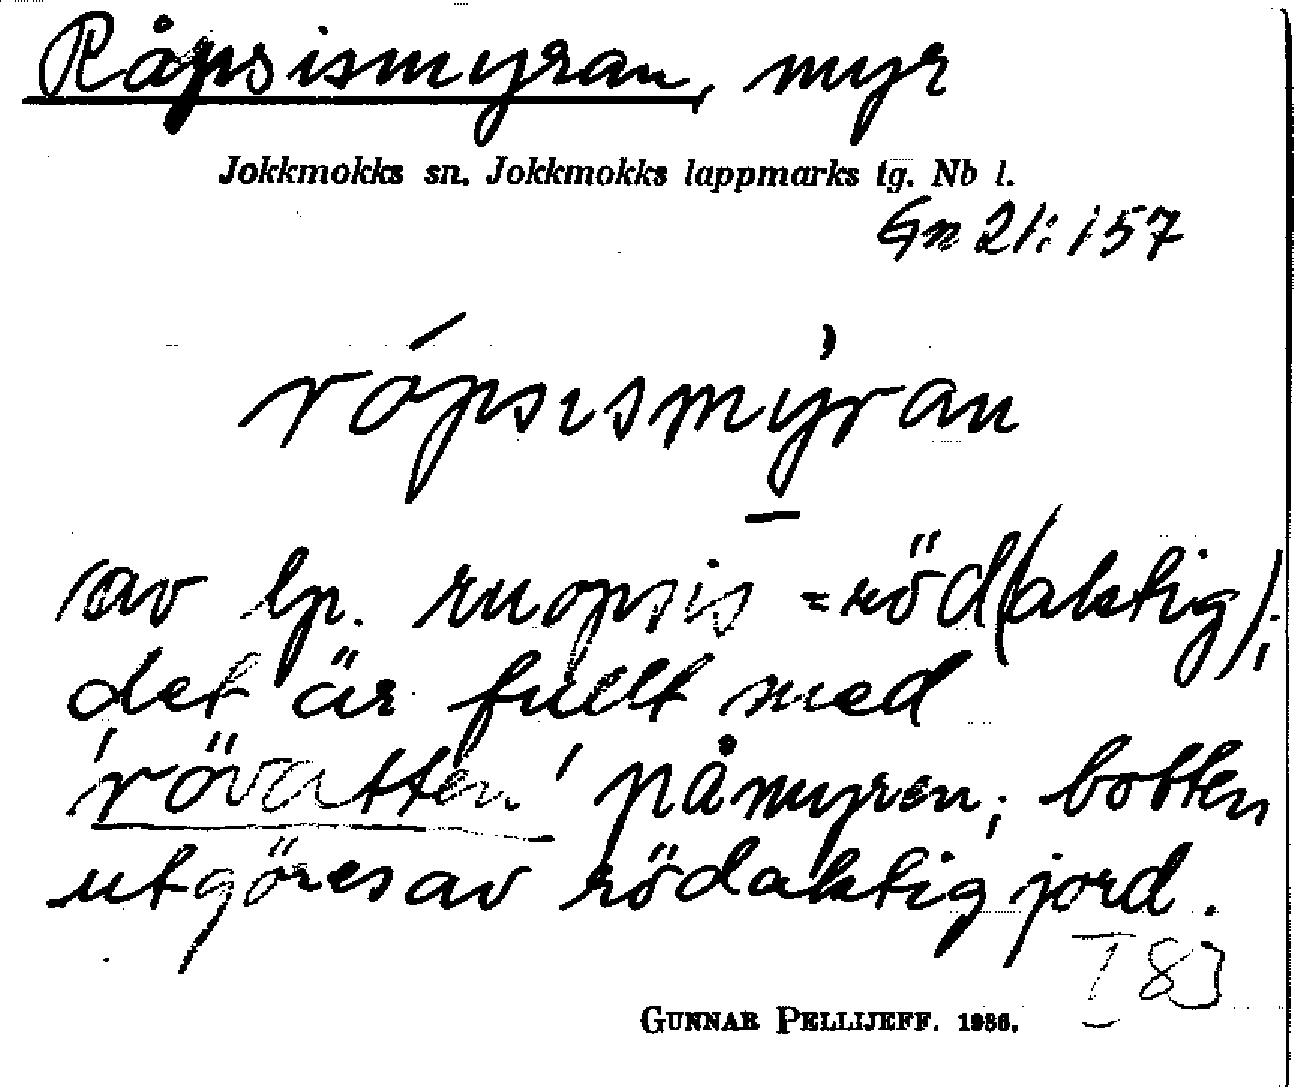 Råpsismyran, myr
Jokkmokks sn. Jokkmokks lappmarks tg. Nb l.
Gn 21:157
rópsismỳran
(av lp. ruopsis = röd(aktig);
det är fullt med
'rövatten' på myren; botten
utgöres av rödaktig jord.
I 83
GUNNAR PELLIJEFF. 1936.